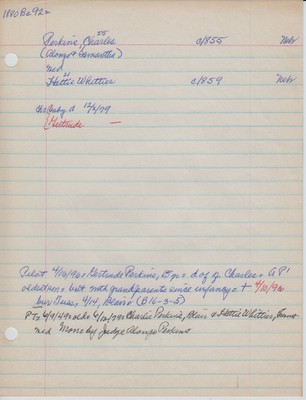 1880 Be 92
Perkins, Charles 25 c/1855 Nebr
(Alonzo & Samantha)
md
Hettie Whittier 21 c/1859 Nebr
ch: baby d 12/2/79
Gertrude —
Pilot 4/16/96: Gertrude Perkins, 15 yrs d of Charles & P'
oldest son & but with grandparents since infancy + 4/10/96
bur Tues, 4/14, Blair (B16-3-5)
PT= 4/9/49: olds 4/10/79= Charlie Perkins, Blair & Hettie Whittier,
md Mon by Judge Alonzo Perkins